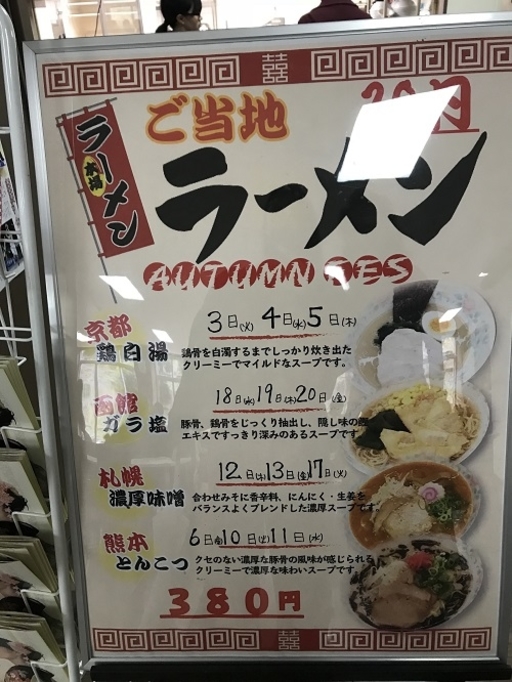 囍
10月
ご当地
ラーメン
本場
ラーメン
AUTUMN FES
京都
鶏白湯
3日(火) 4日(水) 5日(木)
鶏骨を白濁するまでしっかり炊き出た
クリーミーでマイルドなスープです。
函館
ガラ塩
18日(水)19日(木)20日(金)
豚骨、鶏骨をじっくり抽出し、隠し味の
エキスですっきり深みのあるスープです
札幌
濃厚味噌
12日(木)13日(金)17日(火)
合わせみそに香辛料、にんにく・生姜を
バランスよくブレンドした濃厚スープです。
熊本
とんこつ
6日(金)10日(火)11日(水)
クセのない濃厚な豚骨の風味が感じられる
クリーミーで濃厚な味わいスープです。
380円
囍